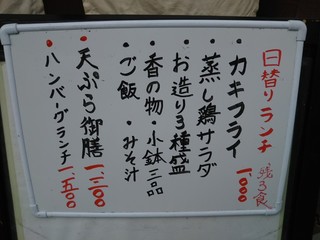 日替りランチ 残3食
・カキフライ 1,000
・蒸し鶏サラダ
・お造り3種盛
・香の物・小鉢三品
・ご飯・みそ汁
・天ぷら御膳 1,200
・ハンバーグランチ 1,500